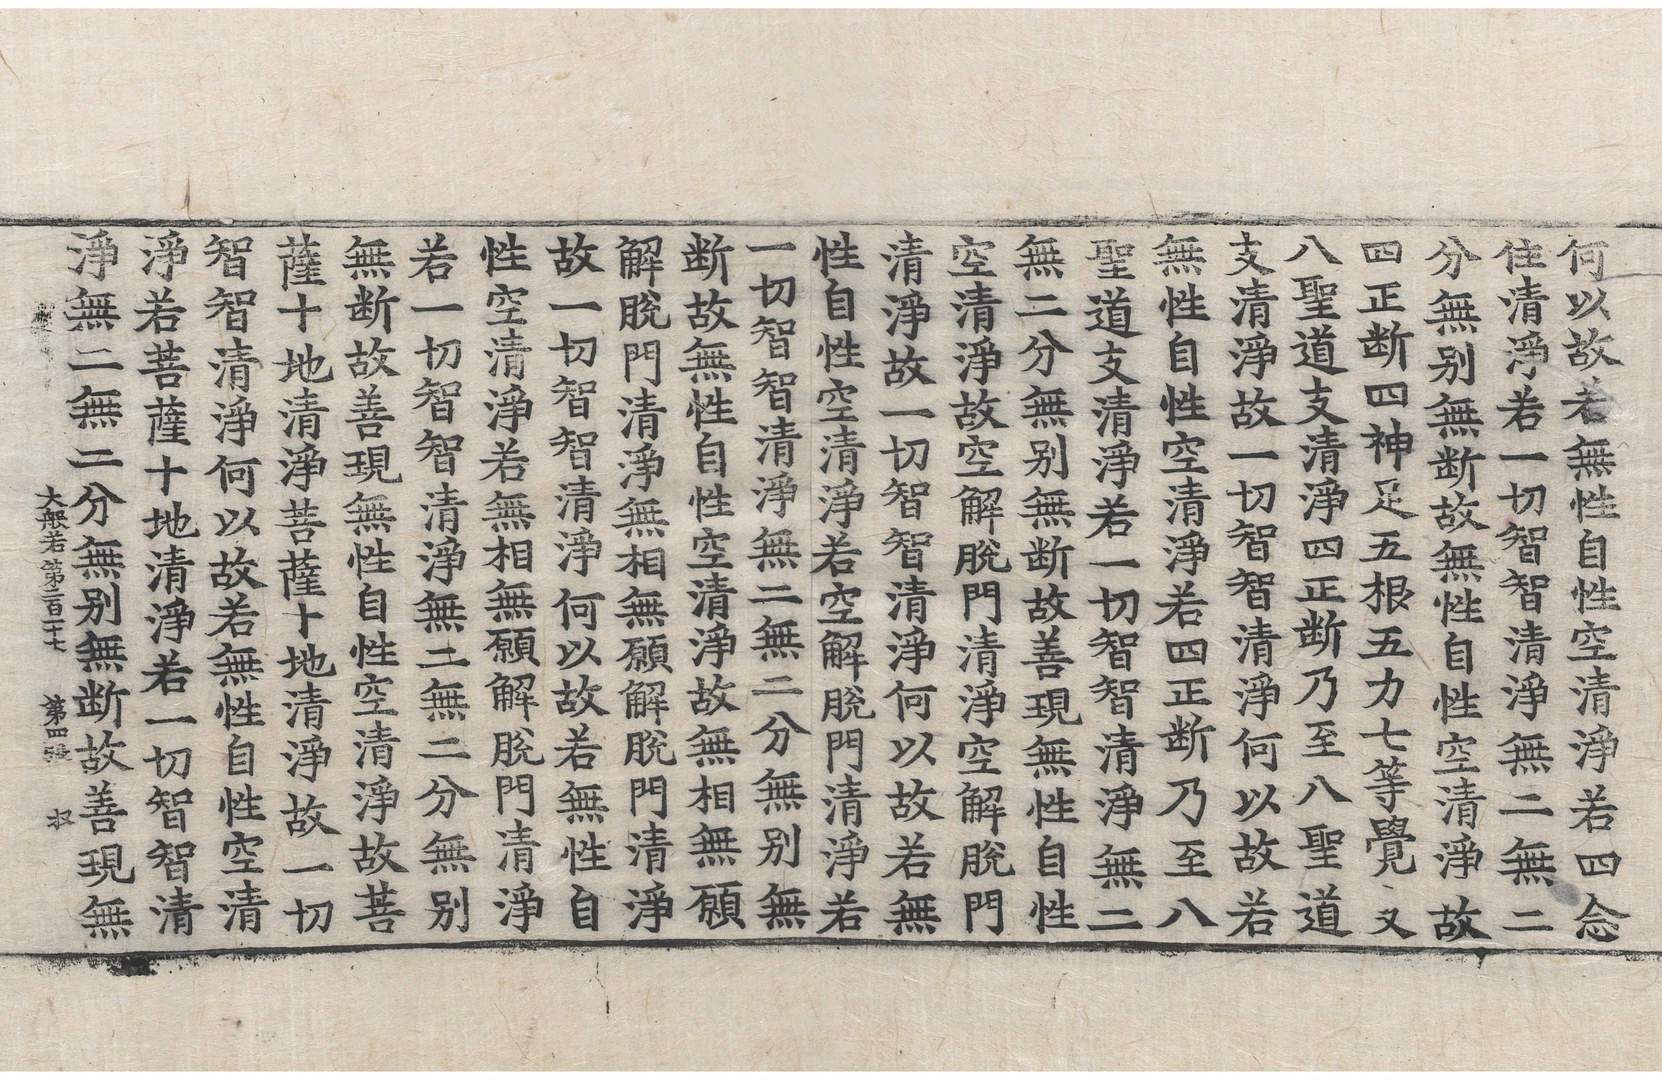 何以故若無性自性空清淨若四念
住清淨若一切智智清淨無二無二
分無别無断故無性自性空清淨故
四正断四神足五根五力七等覺支
八聖道支清淨四正断乃至八聖道
支清淨故一切智智清淨何以故若
無性自性空清淨若四正断乃至八
聖道支清淨若一切智智清淨無二
無二分無别無断故善現無性自性
空清淨故空解脫門清淨空解脫門
清淨故一切智智清淨何以故若無
性自性空清淨若空解脫門清淨若
一切智智清淨無二無二分無别無
断故無性自性空清淨故無相無願
解脫門清淨無相無願解脫門清淨
故一切智智清淨何以故若無性自
性空清淨若無相無願解脫門清淨
若一切智智清淨無二無二分無别
無断故善現無性自性空清淨故菩
薩十地清淨菩薩十地清淨故一切
智智清淨何以故若無性自性空清
淨若菩薩十地清淨若一切智智清
淨無二無二分無别無断故善現無
大般若第二百一十七 第四張 收